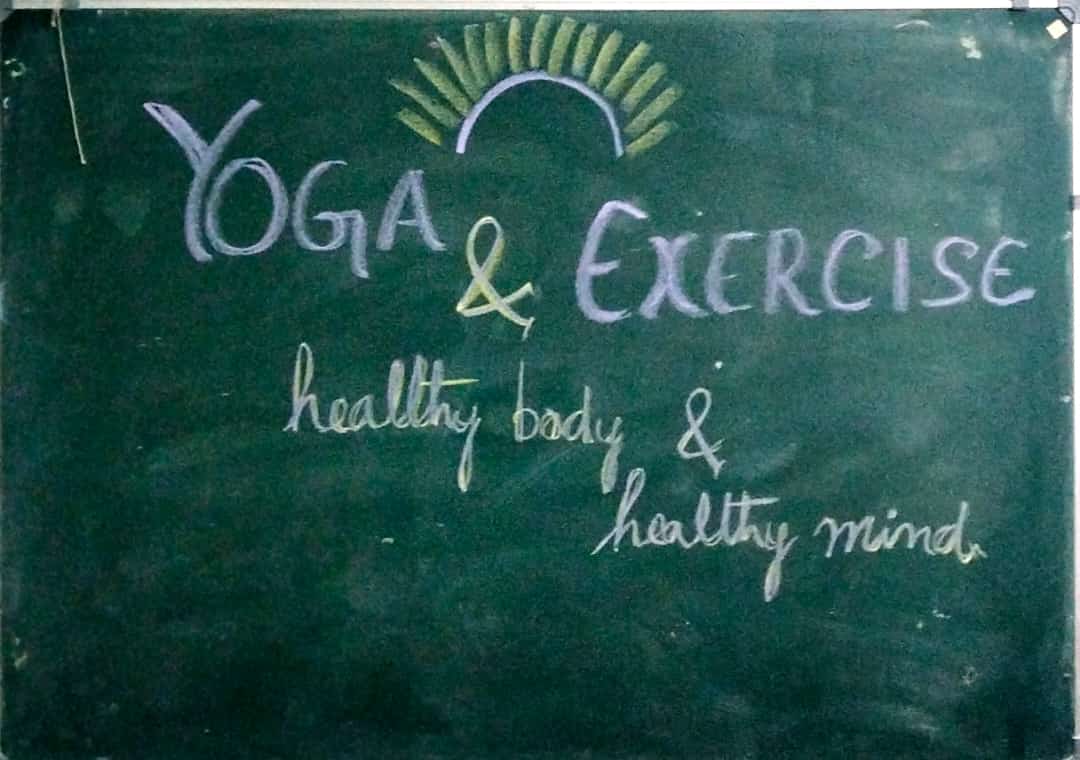 YOGA & EXERCISE
healthy body &
healthy mind.